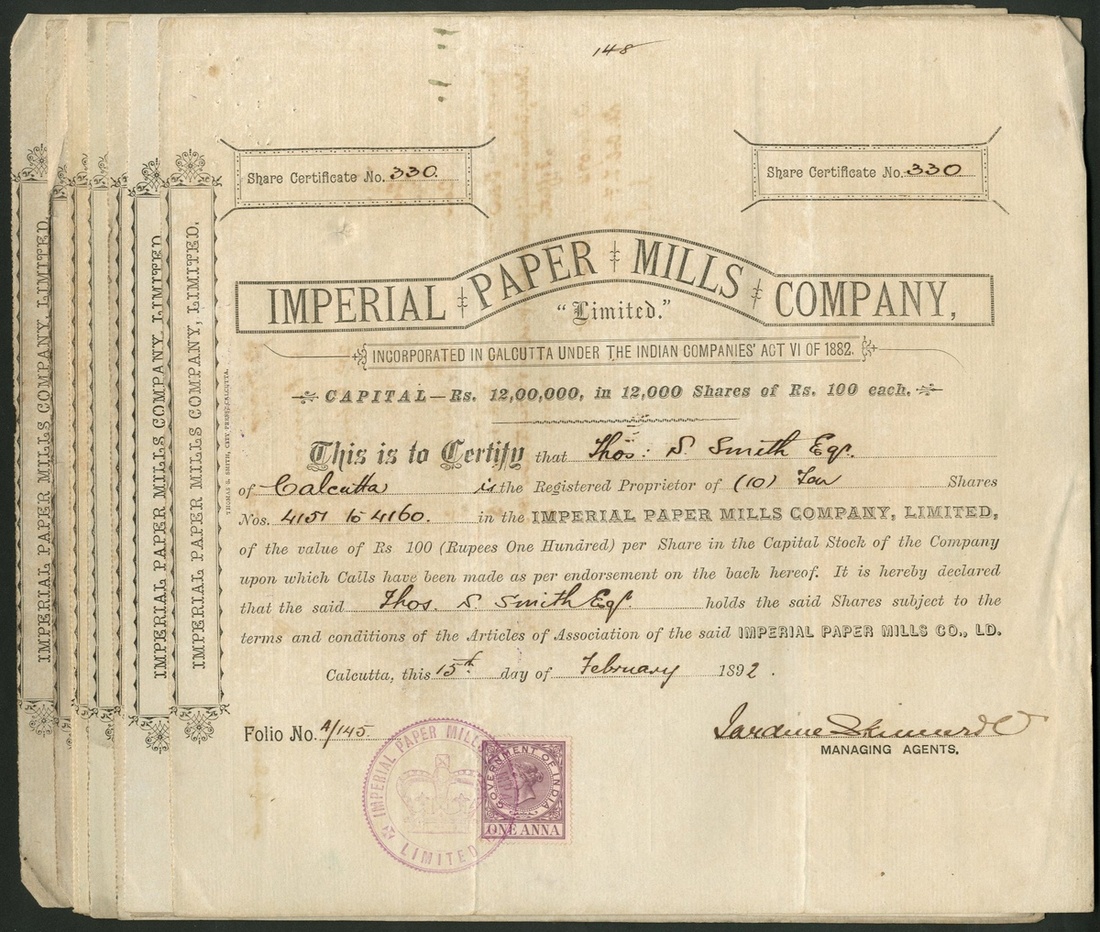 148
Share Certificate No. 330.
Share Certificate No. 330
IMPERIAL PAPER MILLS COMPANY,
"Limited."
INCORPORATED IN CALCUTTA UNDER THE INDIAN COMPANIES' ACT VI OF 1882.
CAPITAL—Rs. 12,00,000, in 12,000 Shares of Rs. 100 each.
This is to Certify that Thos: S. Smith Esqr.
of Calcutta is the Registered Proprietor of (10) Ten Shares
Nos. 4151 to 4160. in the IMPERIAL PAPER MILLS COMPANY, LIMITED,
of the value of Rs 100 (Rupees One Hundred) per Share in the Capital Stock of the Company
upon which Calls have been made as per endorsement on the back hereof. It is hereby declared
that the said Thos. S. Smith Esqr. holds the said Shares subject to the
terms and conditions of the Articles of Association of the said IMPERIAL PAPER MILLS CO., LD.
Calcutta, this 15th day of February 1892.
Folio No. A/145.
Jardine Skinner & Co
MANAGING AGENTS.
IMPERIAL PAPER MILLS
LIMITED
GOVERNMENT OF INDIA
ONE ANNA
IMPERIAL PAPER MILLS COMPANY, LIMITED.
IMPERIAL PAPER MILLS COMPANY LIMITED
IMPERIAL PAPER MILLS COMPANY, LIMITED.
THOMAS S. SMITH, CITY PRESS, CALCUTTA.